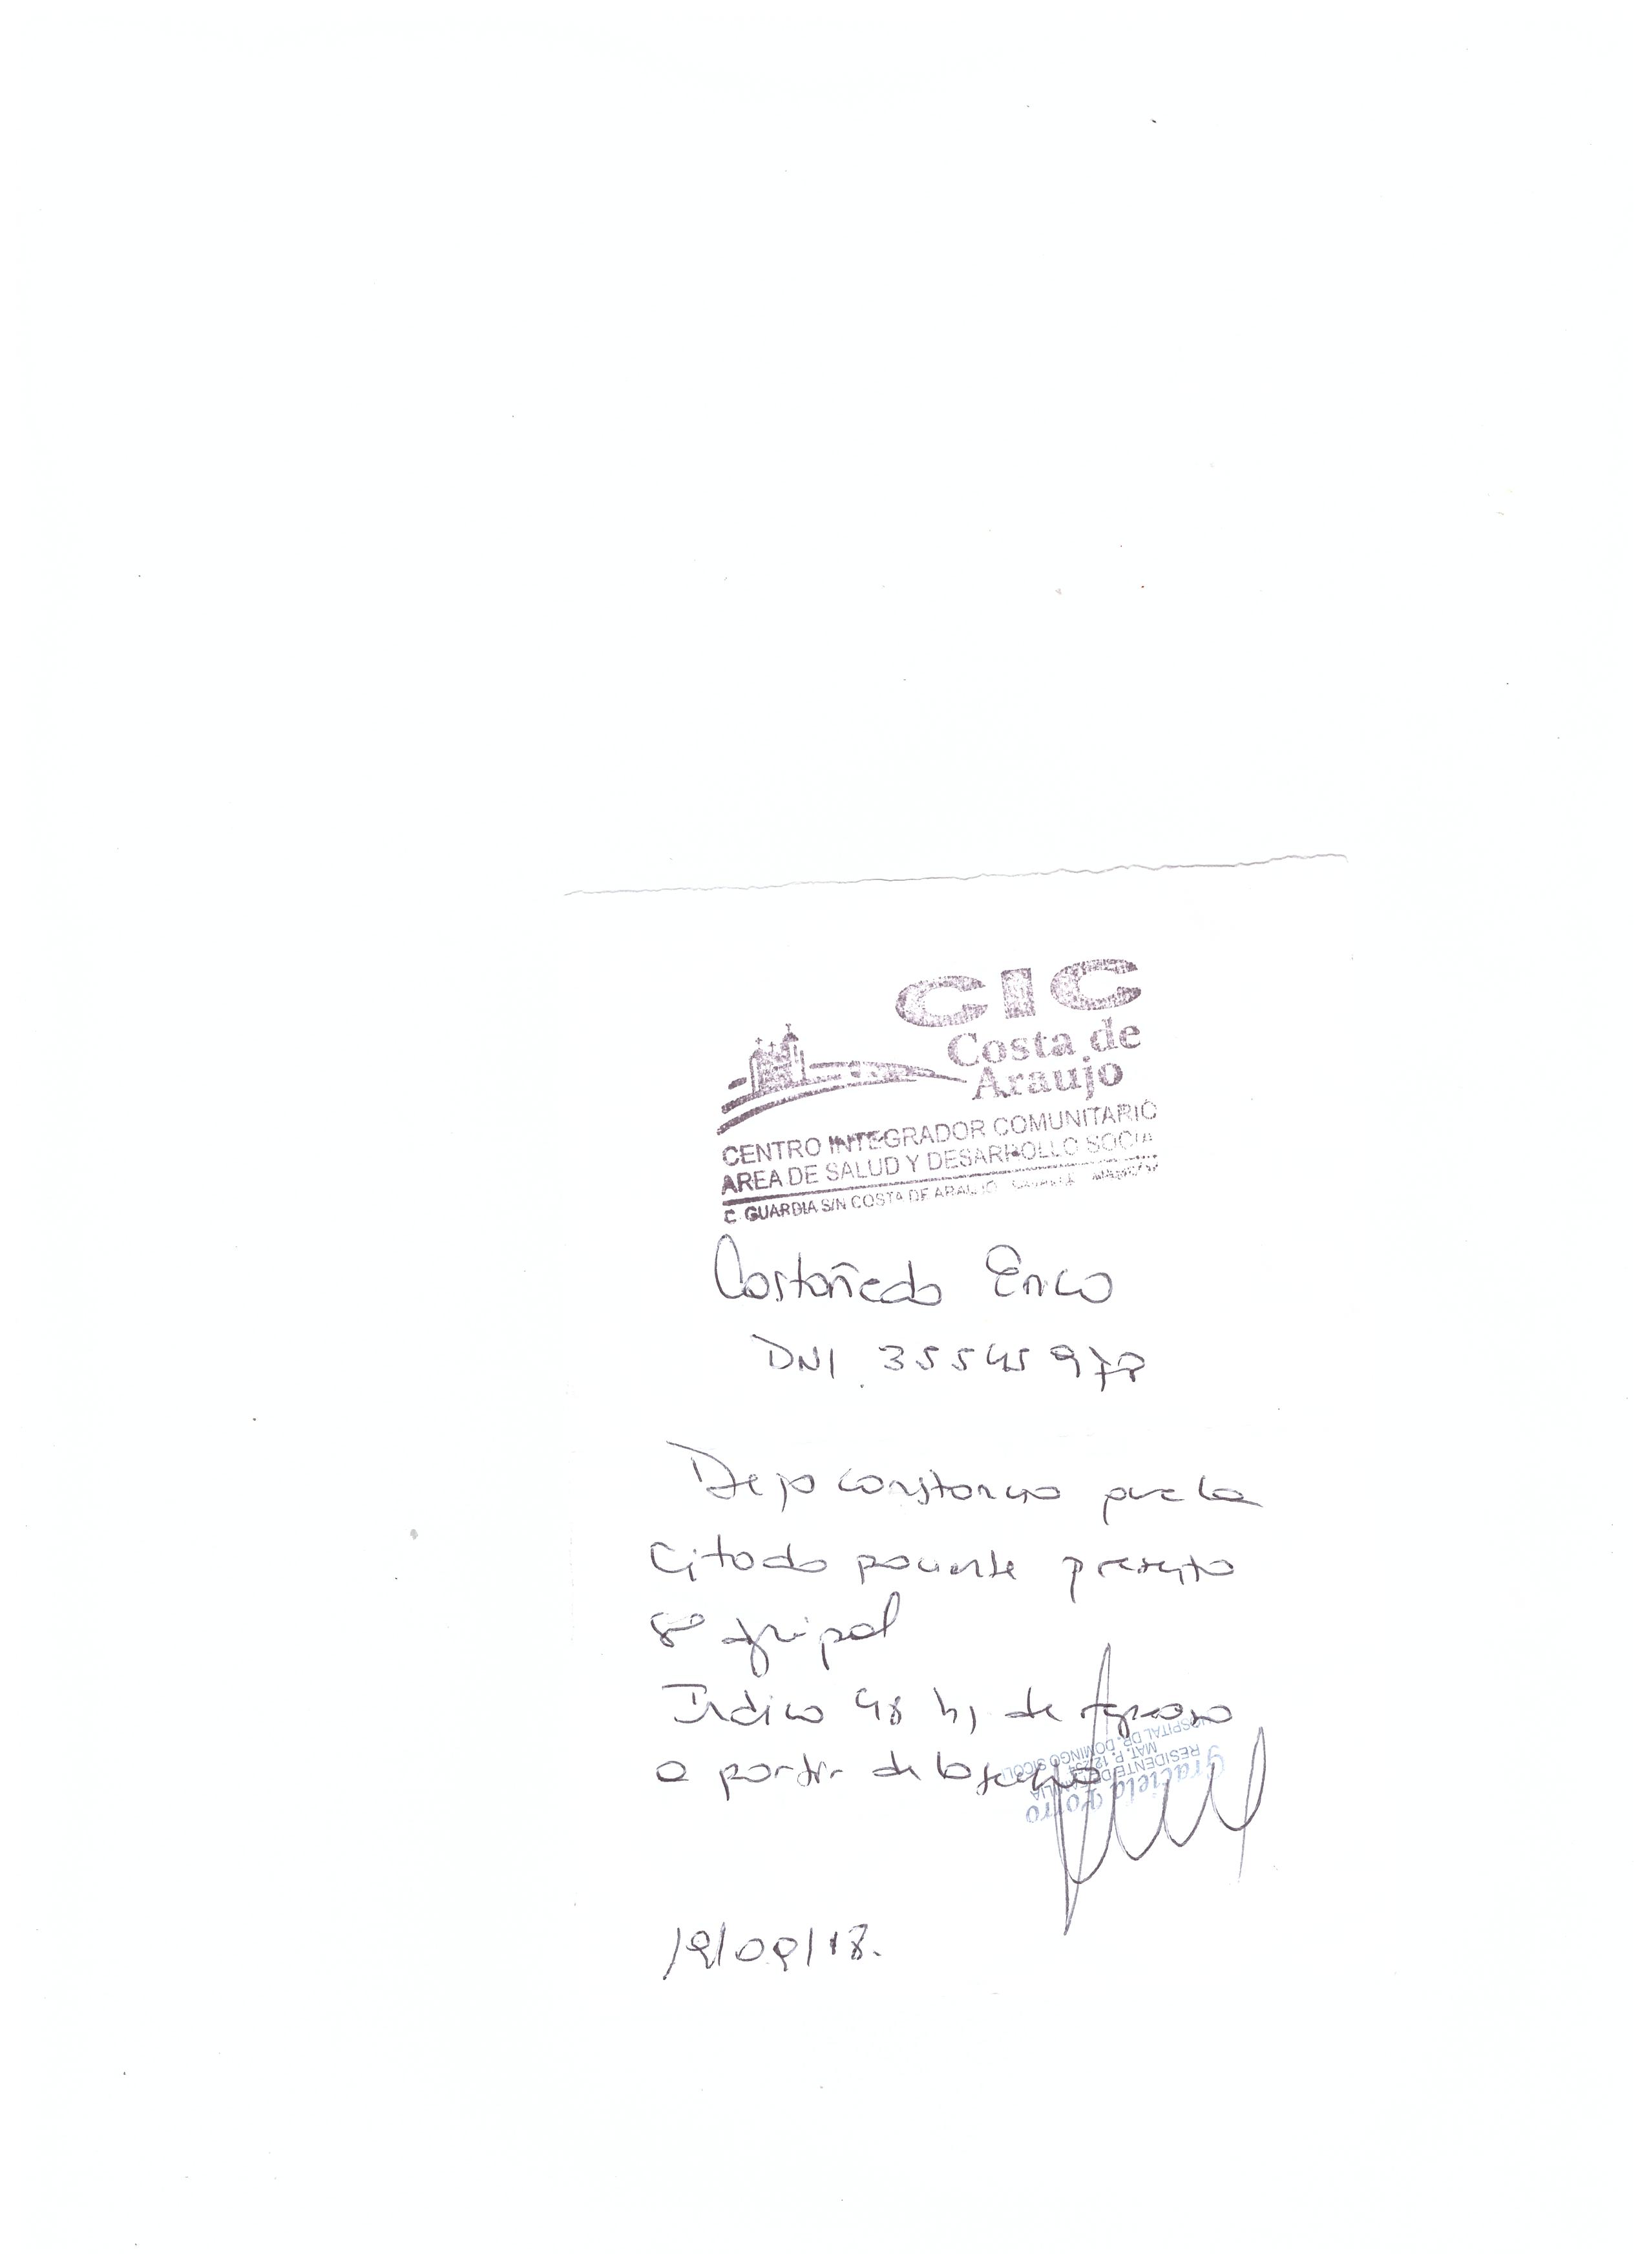 CIC
Costa de
Araujo
CENTRO INTEGRADOR COMUNITARIO
AREA DE SALUD Y DESARROLLO SOCIA
C. GUARDIA S/N COSTA DE ARAUJO
Costañeda Erica
DNI 35545978
Dejo constancia que la
Citada paciente presenta
gripal
Indico 48 hs de reposo
a partir de la fecha
HOSPITAL DR. DOMINGO SICOLI
MAT. P. 12294
RESIDENTE DE FAMILIA
Graciela
19/09/18.